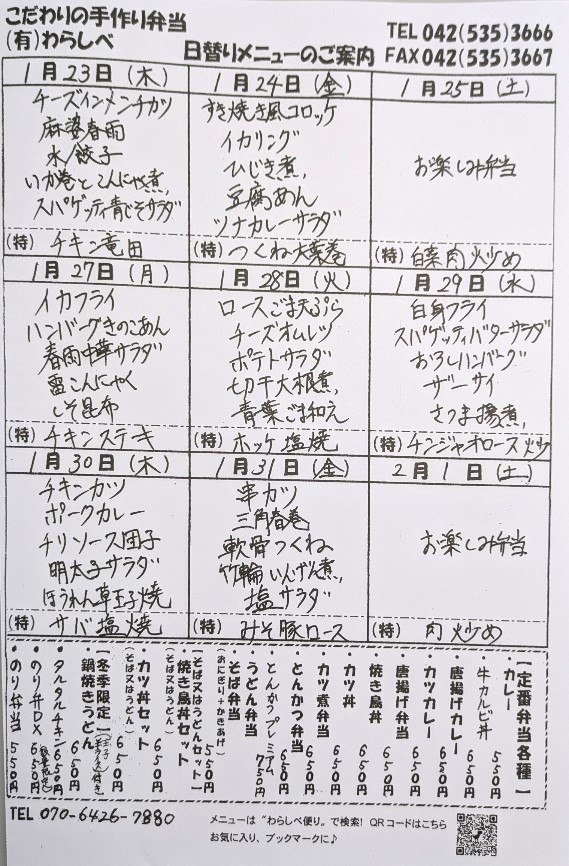 こだわりの手作り弁当
(有)わらしべ
日替りメニューのご案内
TEL 042(535)3666
FAX 042(535)3667
1月23日(木)
チーズインメンチカツ
麻婆春雨
水餃子
いか巻とこんにゃく煮
スパゲッティ青じそサラダ
(特) チキン竜田
1月24日(金)
すき焼き風コロッケ
イカリング
ひじき煮
豆腐あん
ツナカレーサラダ
(特) つくね大葉巻
1月25日(土)
お楽しみ弁当
(特) 白菜肉炒め
1月27日(月)
イカフライ
ハンバーグきのこあん
春雨中華サラダ
雷こんにゃく
しそ昆布
(特) チキンステーキ
1月28日(火)
ロースごま天ぷら
チーズオムレツ
ポテトサラダ
切干大根煮
青菜ごま和え
(特) ホッケ塩焼
1月29日(水)
白身フライ
スパゲッティバターサラダ
おろしハンバーグ
ザーサイ
さつま揚煮
(特) チンジャオロース炒め
1月30日(木)
チキンカツ
ポークカレー
チリソース団子
明太子サラダ
ほうれん草玉子焼
(特) サバ塩焼
1月31日(金)
串カツ
三角春巻
軟骨つくね
竹輪いんげん煮
塩サラダ
(特) みそ豚ロース
2月1日(土)
お楽しみ弁当
(特) 肉炒め
【定番弁当各種】
・カレー 550円
・牛カルビ丼 650円
・唐揚げカレー 650円
・カツカレー 650円
・唐揚げ弁当 650円
・焼き鳥丼 650円
・カツ丼 650円
・カツ煮弁当 650円
・とんかつ弁当 650円
・とんかつプレミアム 750円
・うどん弁当
・そば弁当
(おにぎり+かきあげ) 550円
【そば又はうどんセット】
・焼き鳥丼セット
(そば又はうどん) 650円
・カツ丼セット
(そば又はうどん) 650円
【冬季限定】
・鍋焼きうどん 650円
・タルタルチキン 650円
・のり弁DX 650円
・のり弁当 550円
TEL 070-6426-7880
メニューは"わらしべ便り"で検索! QRコードはこちら
お気に入り、ブックマークに♪